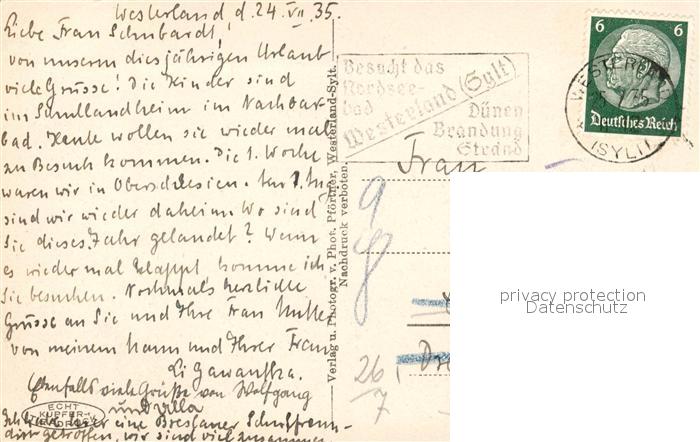 Westerland d. 24. VII. 35.
Liebe Frau Schubardt!
von unserm diesjährigen Urlaub
viele Grüsse! Die Kinder sind
im Schullandheim im Nachbar-
bad. Heute wollen sie wieder mal
zu Besuch kommen. Die 1. Woche
waren wir in Oberschlesien. Am 1. Au
sind wir wieder daheim. Wo sind
Sie dieses Jahr gelandet? Wenn
es wieder mal klappt, komme ich
Sie besuchen. Nochmals herzliche
Grüsse an Sie und Ihre Frau Mutter
von meinem Mann und Ihrer Frau
Li
Ebenfalls viele Grüße von Wolfgang
und
hier eine Breslauer Schulfreun-
din getroffen, wir sind viel zusammen
ECHT
KUPFER-
TIEFDRUCK
Verlag u. Photogr. v. Phot. Pförtner, Westerland-Sylt.
Nachdruck verboten.
Besucht das
Nordsee-
bad
Westerland (Sylt)
Dünen
Brandung
Strand
6 6
Deutsches Reich
WESTERLAND
(SYLT)
Frau
26/7
privacy protection
Datenschutz